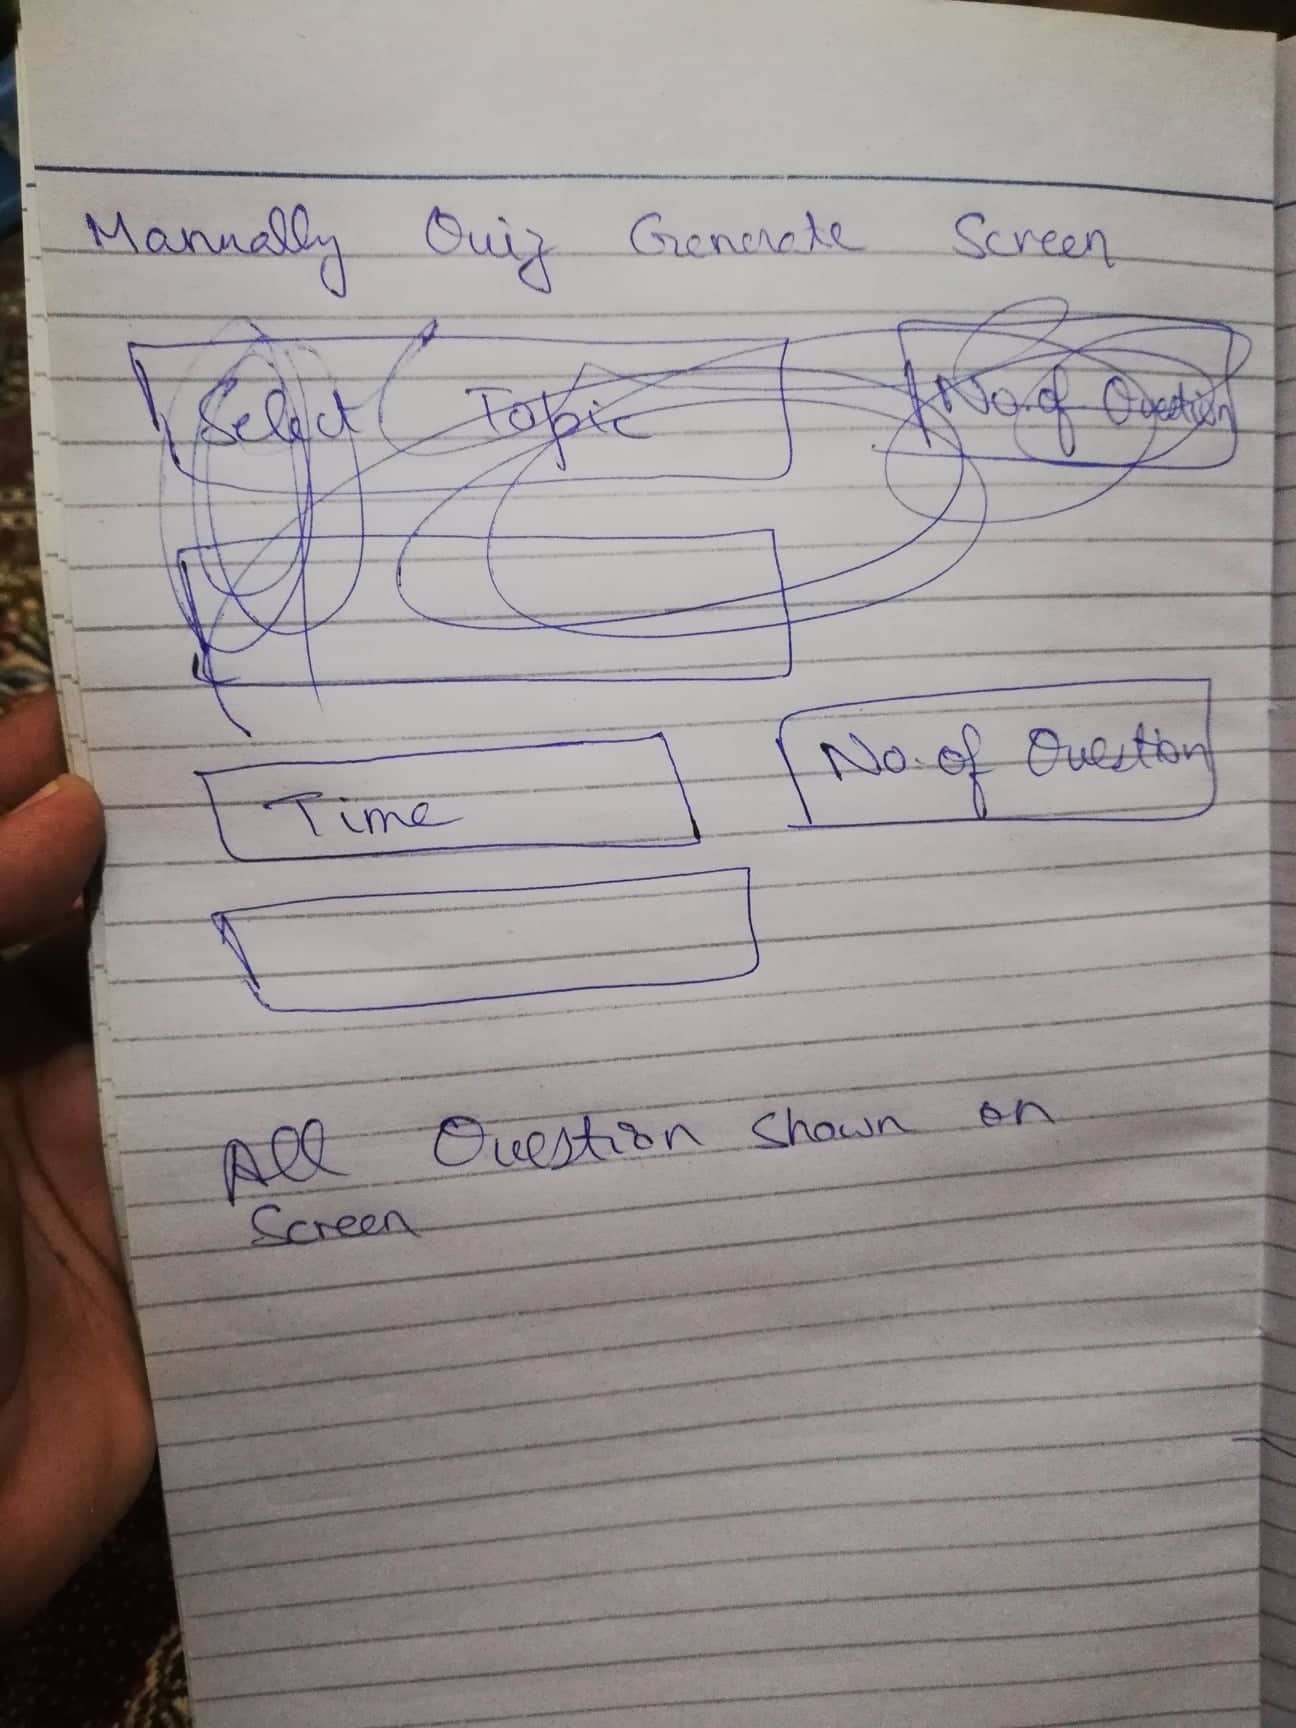 Manually Quiz Generate Screen
Select Topic No. of Question
Time No. of Question
All Question shown on
Screen